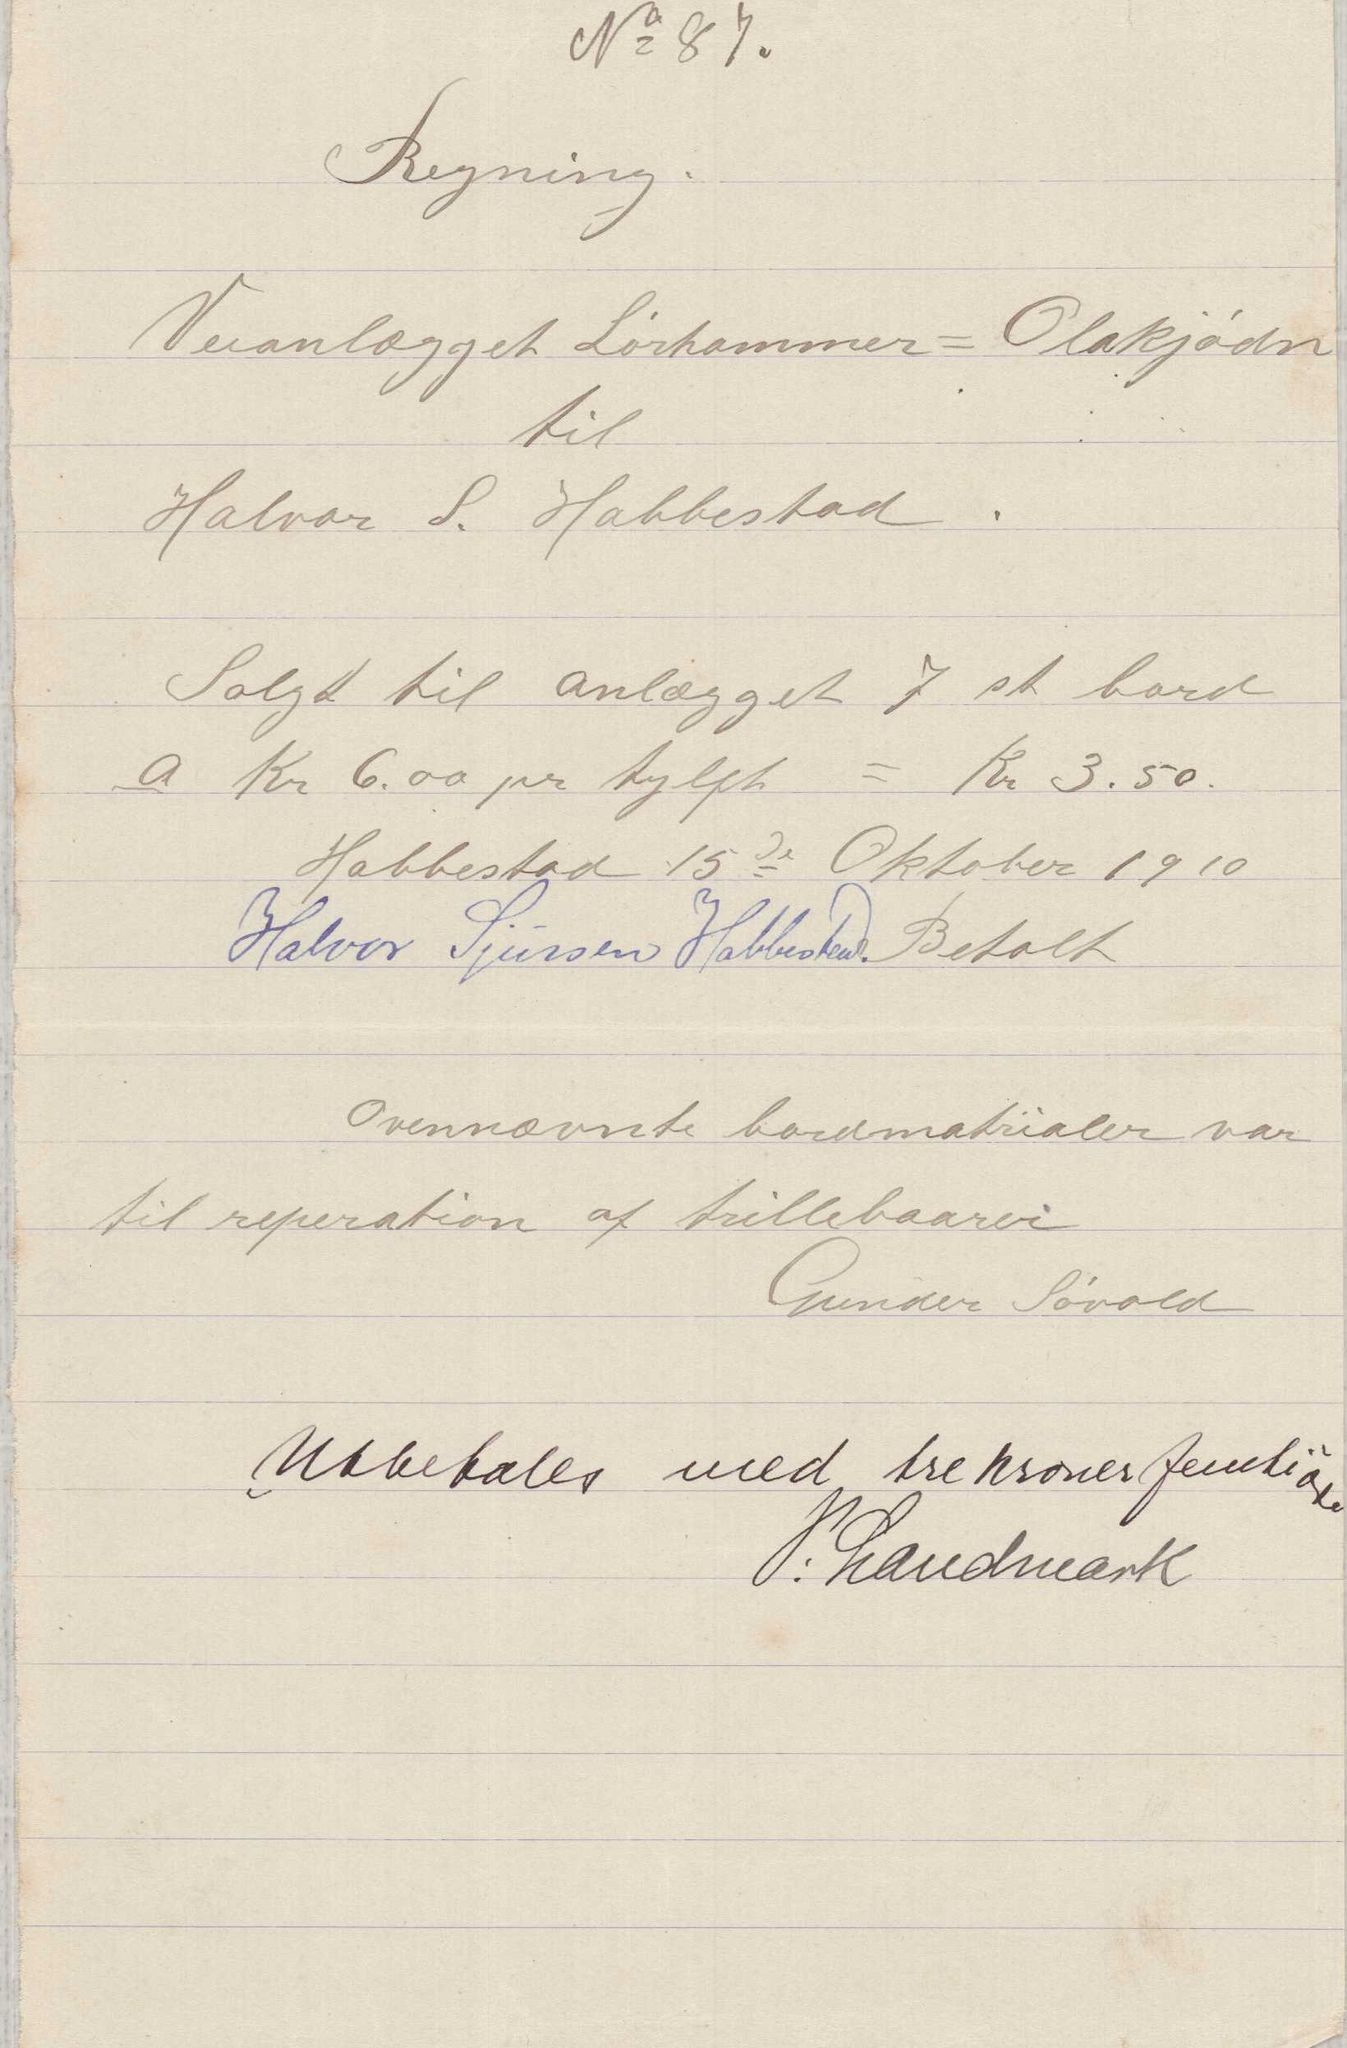 No 87.
Regning.
Veianlægget Lórhammer = Olakjódn
til
Halvor S. Habbestad.
Solgt til anlægget 7 st bord
a Kr 6.00 pr tylft = Kr 3.50.
Habbestad 15de Oktober 1910
Halvor Sjursen Habbestad. Betalt
Ovennævnte bordmatrialer var
til reperation af trillebaarer
Gunder Sóvold
Utbetales med tre kroner femti øre
P. Landmark